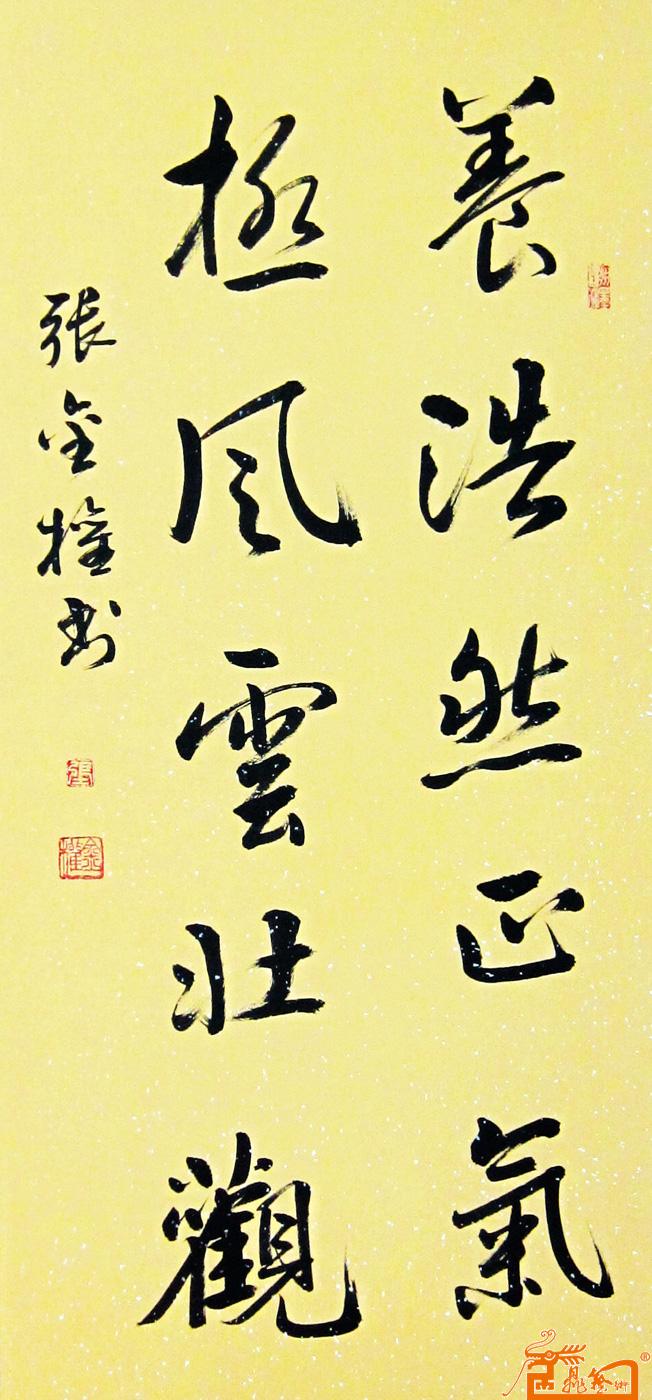 養浩然正氣
極風雲壯觀
張金權书